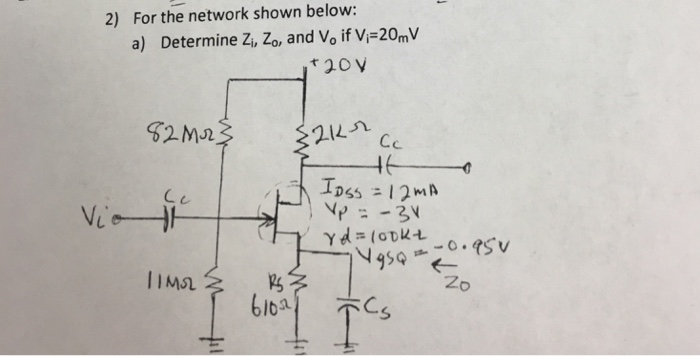 2) For the network shown below:
a) Determine Zi, Zo, and Vo if Vi=20mV
+20V
82MΩ
2KΩ
Cc
IDSS = 12mA
Cc
Vp = -3V
Vi
rd = 100k
VgSQ = -0.95V
Zo
11MΩ
RS
610Ω
CS